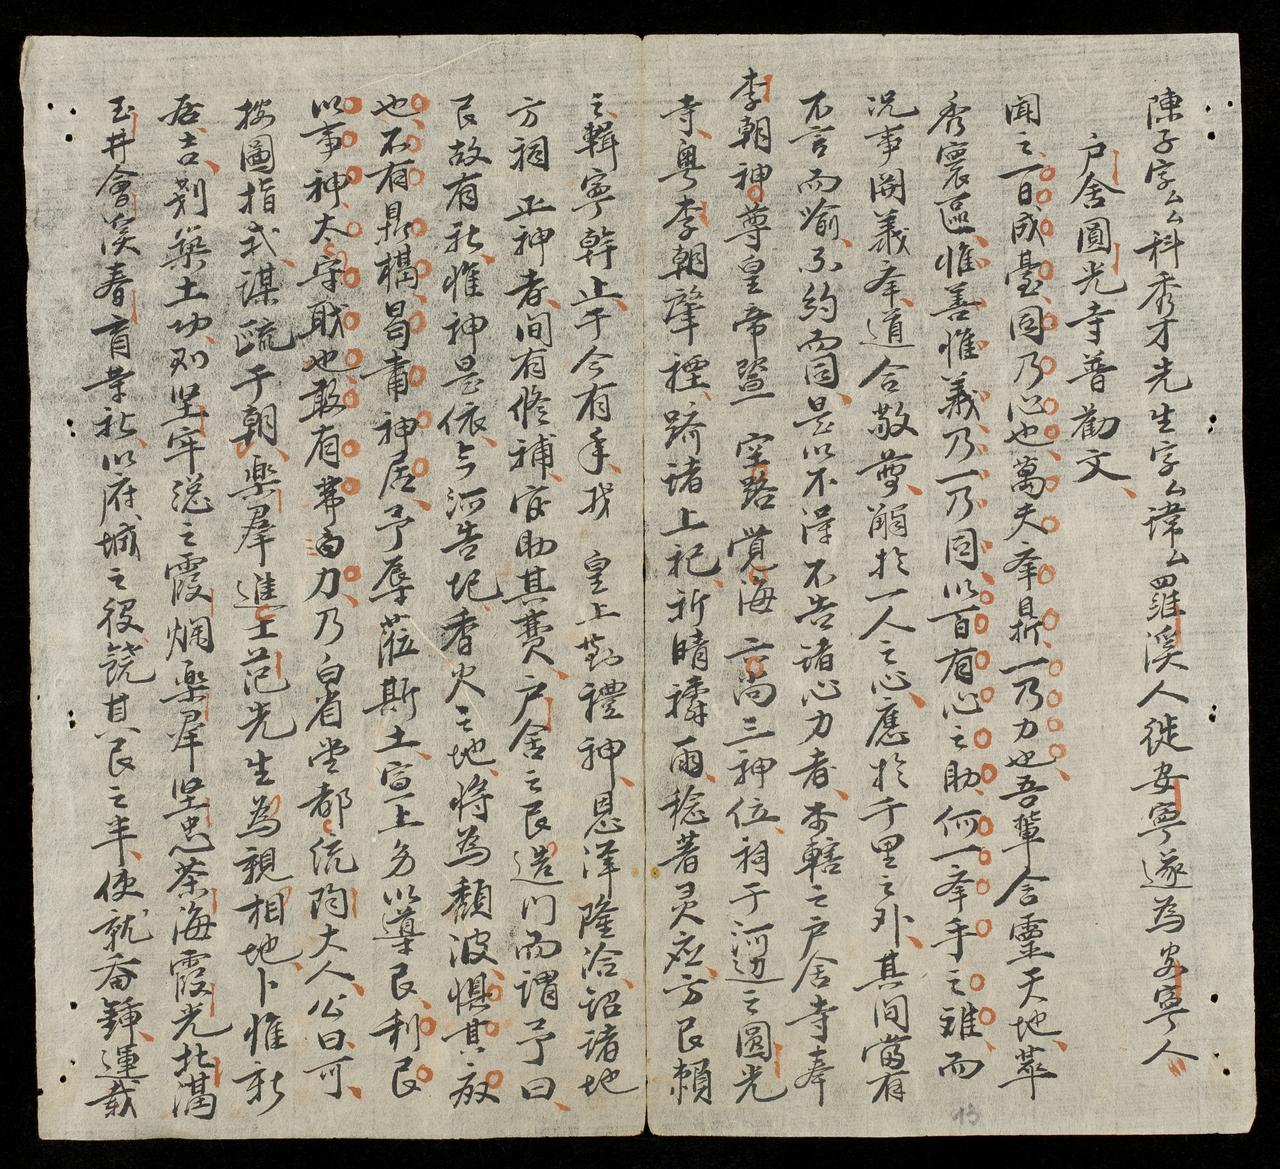 陳子字厶厶科秀才先生字厶諱厶羅溪人徙安寧遂為安寧人
户舍圓光寺普勸文
聞之一日成臺同乃心也萬夫牽鼎一乃力也吾輩含靈天地萃
秀寰區惟善惟義乃一乃同以百有心之助何一牽手之難而
况事關義牽道合敬尊觴於一人之心應於千里之外其間當有
不言而喻不約而同是以不淂不告诸心力者本轄之户舍寺奉
李朝神尊皇帝暨 空路覺海 三位神位祠于河边之圓光
寺粤李朝肇禋躋诸上祀祈晴禱雨稔著灵应方民賴
之輯寧幹止于今有年我 皇上懃禮神恩澤隆洽詔诸地
方祠正神者间有修補官助其費户舍之民造门而謂予曰
民故有社惟神是依今河告圮香火之地将為頹波惧其敢
也不有鼎搆曷肅神居予辱莅斯土宣上务以導民利民
以事神大守职也敢有弗力乃白省堂都统大人公曰可
按圖指式謀疏于朝樂群進士范先生為親相地卜惟新
居吉剏築土功坚牢總之霞烱樂群坚忠茶海霞光北满
玉井會溪春育業社以府城之役饒其民之半使就畚鍤運载